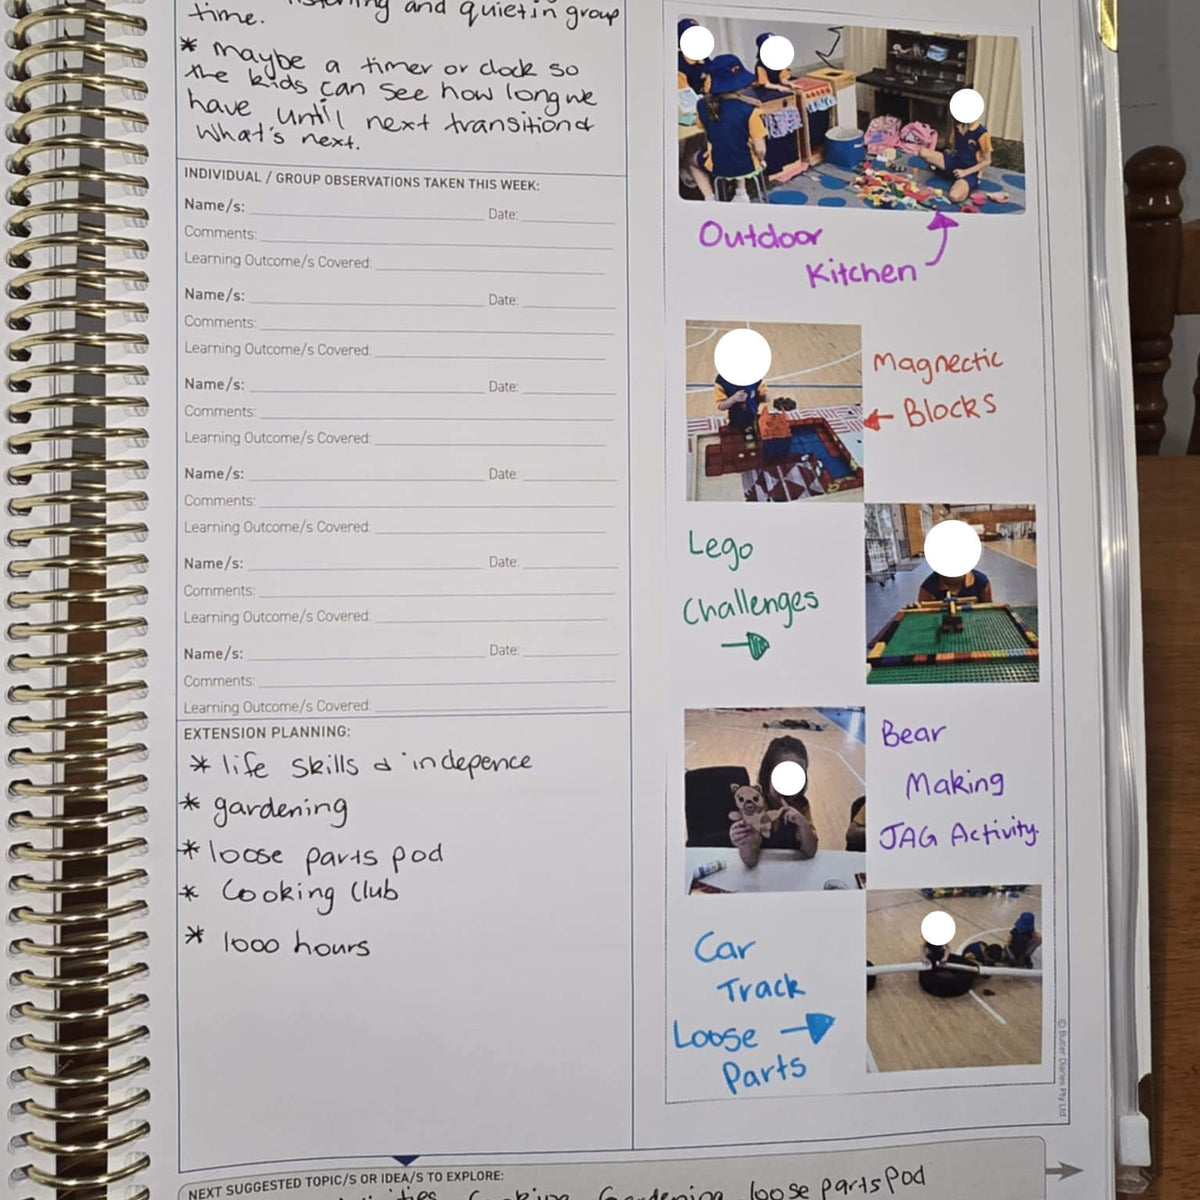 listening and quiet in group
time.
* maybe a timer or clock so
the kids can see how long we
have until next transition &
What's next.
INDIVIDUAL / GROUP OBSERVATIONS TAKEN THIS WEEK:
Name/s: Date:
Comments:
Learning Outcome/s Covered:
Name/s: Date:
Comments:
Learning Outcome/s Covered:
Name/s: Date:
Comments:
Learning Outcome/s Covered:
Name/s: Date:
Comments:
Learning Outcome/s Covered:
Name/s: Date:
Comments:
Learning Outcome/s Covered:
Name/s: Date:
Comments:
Learning Outcome/s Covered:
EXTENSION PLANNING:
* life skills & indepence
* gardening
* loose parts pod
* Cooking Club
* 1000 hours
NEXT SUGGESTED TOPIC/S OR IDEA/S TO EXPLORE:
Cooking Gardening loose parts pod
Outdoor
Kitchen
Magnectic
Blocks
Lego
Challenges
Bear
Making
JAG Activity.
Car
Track
Loose
Parts
© Butler Diaries Pty Ltd